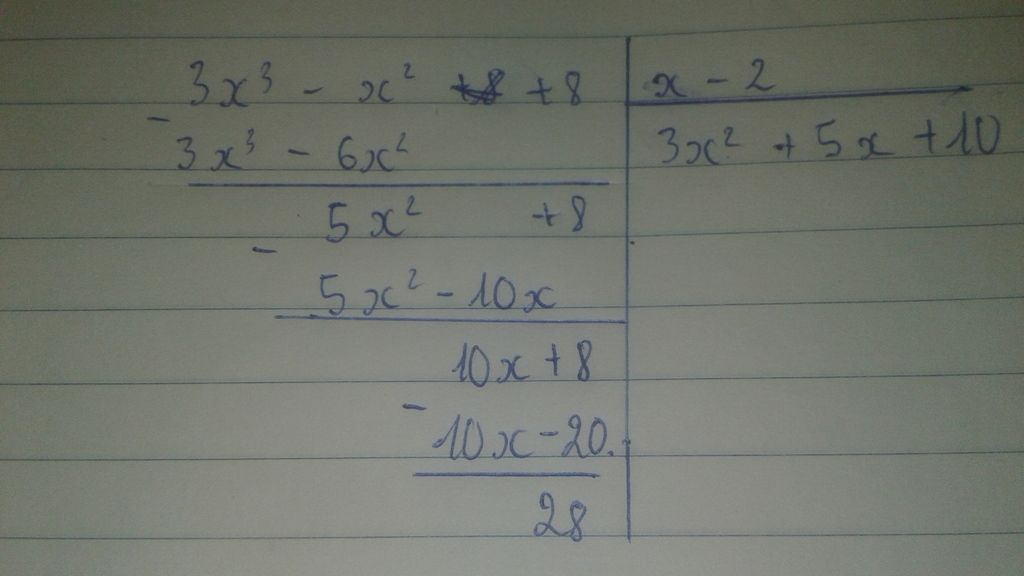 3x³ - x² +8 | x - 2
- 3x³ - 6x² | 3x² + 5x + 10
5x² +8
- 5x² - 10x
10x + 8
- 10x - 20
28